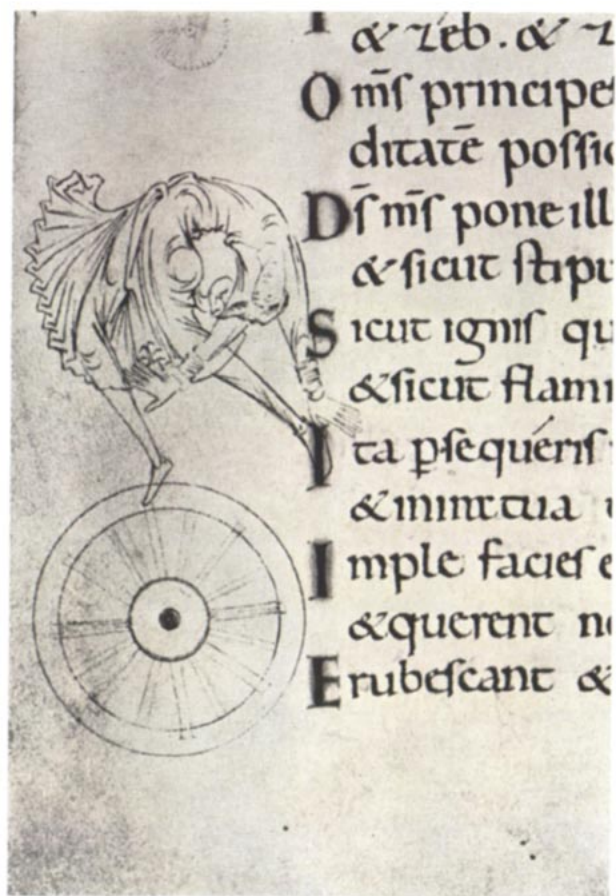 & zeb. & z
Om̅ſ principe
ditatē poſſid
Dſ̅ m̅ſ pone ill
& ſicut ſtipu
Sicut igniſ qu
& ſicut flam
Ita p̱ſequériſ
& in ir tua
Imple facieſ e
& querent n
Erubeſcant &